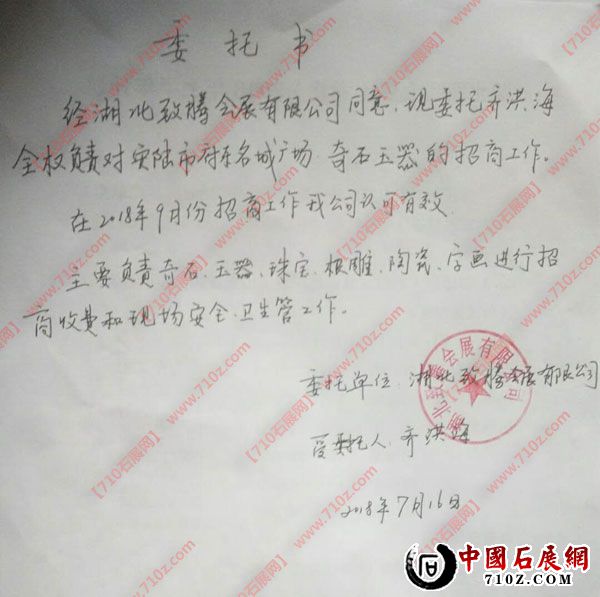 委托书
经湖北致腾会展有限公司同意、现委托齐洪海
全权负责对安陆市府东名城广场 奇石玉器的招商工作。
在2018年9月份招商工作我公司认可有效.
主要负责奇石、玉器、珠宝、根雕、陶瓷、字画进行招
商收费和现场安全、卫生管工作。
委托单位:湖北致腾会展有限公司
会展有限
受委托人、齐洪海
2018年7月16日
中國石展網
710Z.COM
【710石展网】www.710z.com